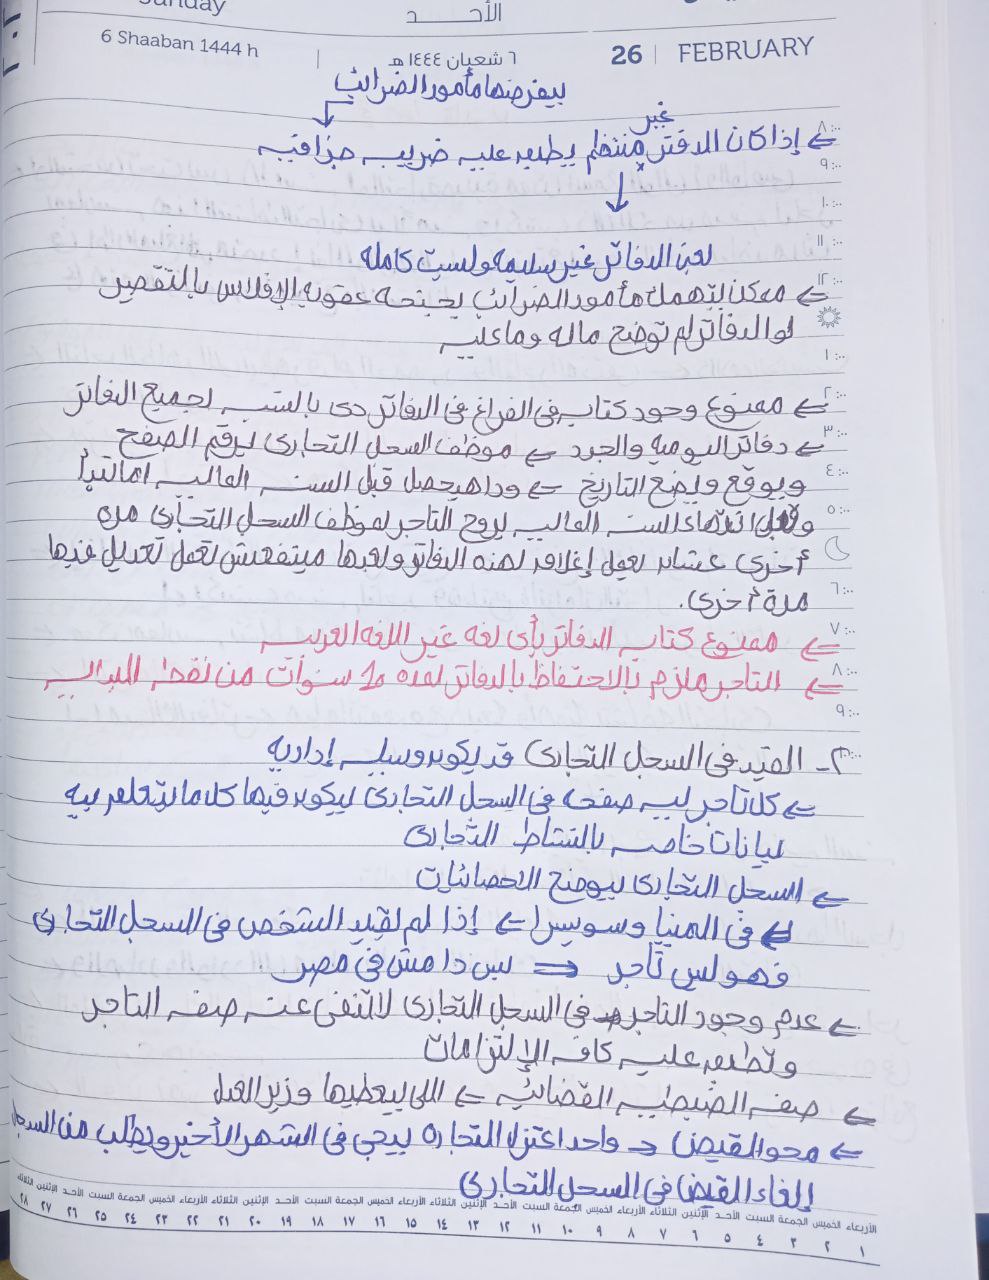 Sunday
الأحـــد
6 Shaaban 1444 h
٦ شعبان ١٤٤٤ هـ
26 | FEBRUARY
بيفرضها مأمور الضرائب
غير
٨:٠٠
⇐ إذا كان الدفتر منتظم يطبق عليه ضريبه جزافيه
٩:٠٠
١٠:٠٠
١١:٠٠
لان الدفاتر غير سليمه وليست كامله
١٢:٠٠
⇐ ممكن يتهمك مأمور الضرائب بجنحه عقوبه الإفلاس بالتقصير
لو الدفاتر لم توضح ماله وماعليه
١:٠٠
٢:٠٠
⇐ ممنوع وجود كتابه فى الفراغ فى الدفاتر دى بالنسبه لجميع الدفاتر
٣:٠٠
⇐ دفاتر اليوميه والجرد ⇐ موظف السجل التجارى يرقم الصفح
٤:٠٠
ويوقع ويضع التاريخ ⇐ ودا هيحصل قبل السنه الماليه اما تبدأ
٥:٠٠
وقبل انتهاء السنه الماليه يروح التاجر لموظف السجل التجارى مره
أخرى عشان يعمل إغلاق لهذه الدفاتر وبعدها مينفعش تعمل تعديل فيها
٦:٠٠
مرة أخرى.
٧:٠٠
⇐ ممنوع كتابه الدفاتر بأى لغه غير اللغه العربيه
٨:٠٠
⇐ التاجر ملزم بالاحتفاظ بالدفاتر لمده 10 سنوات من نقطه البدايه
٩:٠٠
٢- القيد فى السجل التجارى قد يكون وسيله إداريه
⇐ كل تاجر ليه صفحه فى السجل التجارى ليكون فيها كل ما يتعلق بيه
بيانات خاصه بالنشاط التجارى
⇐ السجل التجارى بيوضح الاحصائيات
⇐ فى المنيا وسويسرا ⇐ إذا لم يقيد الشخص فى السجل التجارى
فهو ليس تاجر ⇐ بس دا مش فى مصر
⇐ عدم وجود التاجر فى السجل التجارى لاتنفى عنه صفه التاجر
وتطبق عليه كافه الإلتزامات
⇐ صفه الضبطيه القضائيه ⇐ اللى بيعطيها وزير العدل
⇐ محو القيض ⇐ واحد اعتزل التجاره بيجى فى الشهر الأخير ويطلب من السجل
إلغاء القيض فى السجل التجارى
الأربعاء الخميس الجمعة السبت الأحـد الإثنين الثلاثاء الأربعاء الخميس الجمعة السبت الأحـد الإثنين الثلاثاء الأربعاء الخميس الجمعة السبت الأحـد الإثنين الثلاثاء الأربعاء الخميس الجمعة السبت الأحـد الإثنين الثلاثاء
١ ٢ ٣ ٤ ٥ ٦ ٧ ٨ ٩ ١٠ ١١ ١٢ ١٣ ١٤ ١٥ ١٦ ١٧ ١٨ ١٩ ٢٠ ٢١ ٢٢ ٢٣ ٢٤ ٢٥ ٢٦ ٢٧ ٢٨